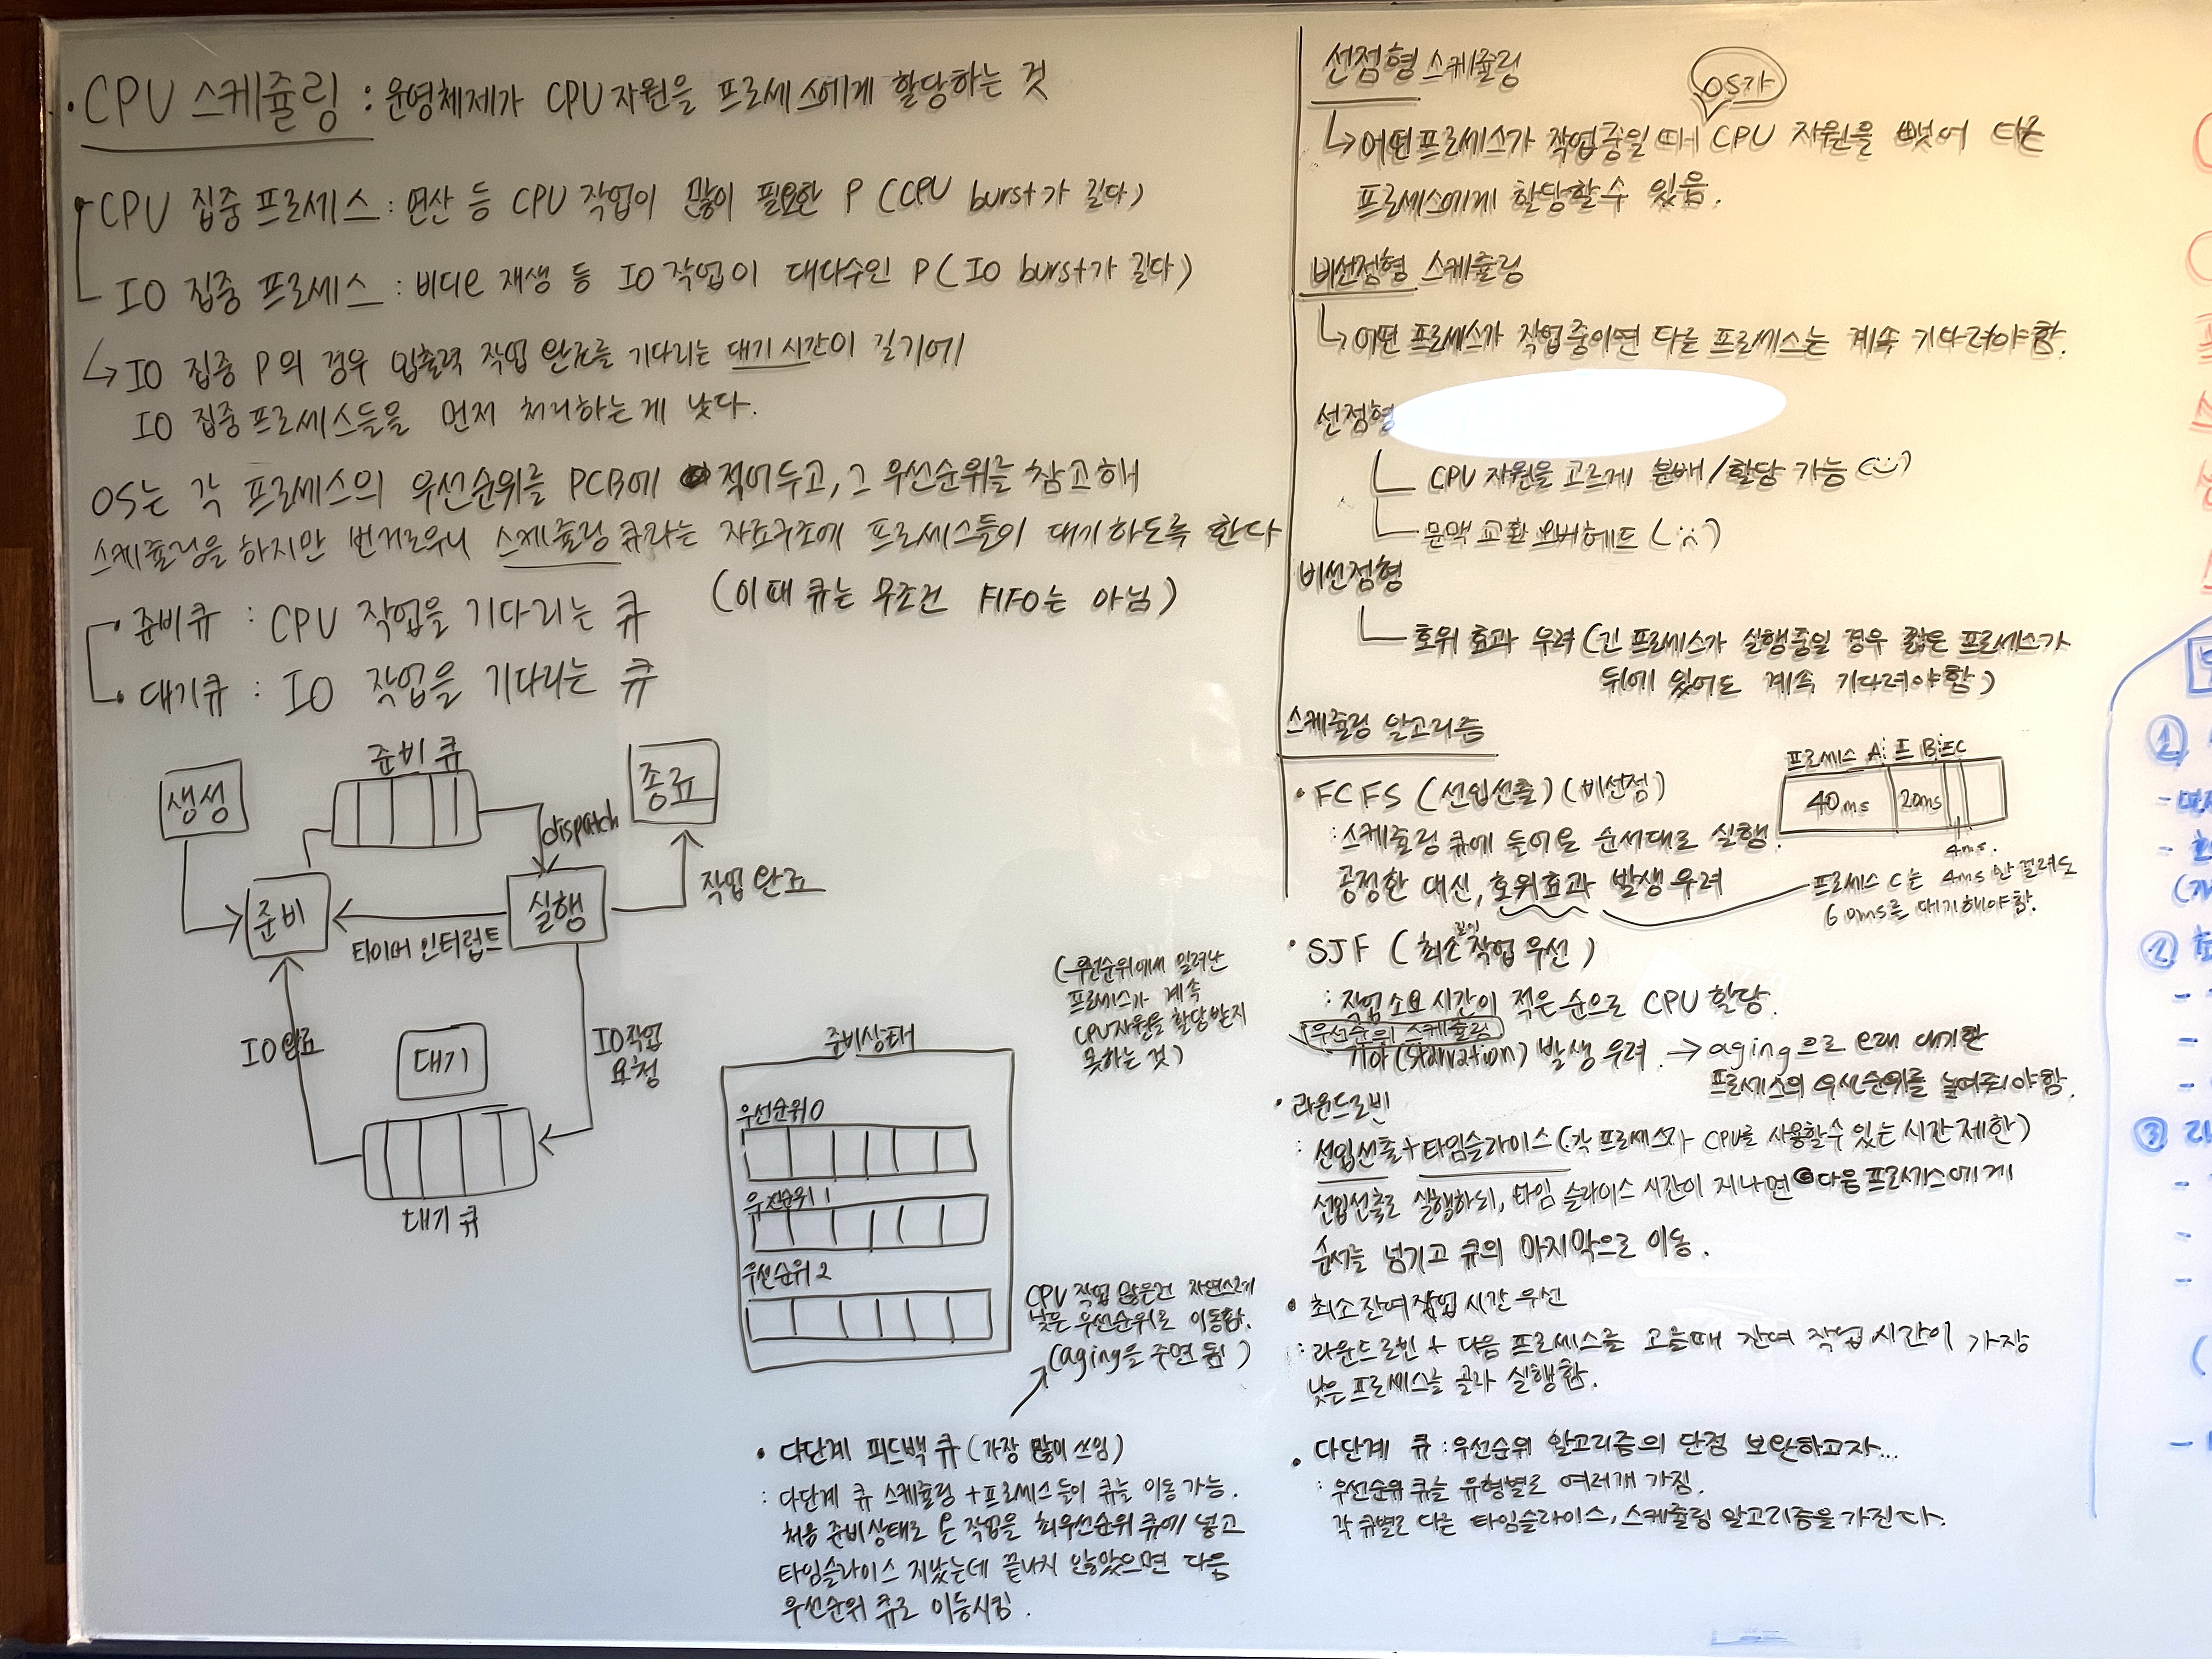 · CPU 스케줄링 : 운영체제가 CPU 자원을 프로세스에게 할당하는 것
CPU 집중 프로세스 : 연산 등 CPU 작업이 많이 필요한 P (CPU burst가 길다)
IO 집중 프로세스 : 비디오 재생 등 IO 작업이 대다수인 P (IO burst가 길다)
↳ IO 집중 P의 경우 입출력 작업 완료를 기다리는 대기 시간이 길기에
IO 집중 프로세스들을 먼저 처리하는게 낫다.
OS는 각 프로세스의 우선순위를 PCB에 적어두고, 그 우선순위를 참고해
스케줄링을 하지만 번거로우니 스케줄링 큐라는 자료구조에 프로세스들이 대기하도록 한다
(이때 큐는 무조건 FIFO는 아님)
· 준비큐 : CPU 작업을 기다리는 큐
· 대기큐 : IO 작업을 기다리는 큐
준비 큐
생성
종료
dispatch
준비
실행
작업 완료
타이머 인터럽트
IO 완료
대기
IO작업
요청
대기 큐
(우선순위에서 밀려난
프로세스가 계속
CPU자원을 할당받지
못하는 것)
준비상태
우선순위 0
우선순위 1
우선순위 2
CPU 작업 많은건 자연스레
낮은 우선순위로 이동함.
(aging을 주면 됨)
· 다단계 피드백 큐 (가장 많이 쓰임)
: 다단계 큐 스케줄링 + 프로세스들이 큐를 이동 가능.
처음 준비상태로 온 작업을 최우선순위 큐에 넣고
타임슬라이스 지났는데 끝나지 않았으면 다음
우선순위 큐로 이동시킴.
선점형 스케줄링
OS가
↳ 어떤 프로세스가 작업중일 때 CPU 자원을 뺏어 다른
프로세스에게 할당할 수 있음.
비선점형 스케줄링
↳ 어떤 프로세스가 작업중이면 다른 프로세스는 계속 기다려야 함.
선점형
CPU 자원을 고르게 분배/할당 가능 (:))
문맥 교환 오버헤드 (:()
비선점형
호위 효과 우려 (긴 프로세스가 실행중일 경우 짧은 프로세스가
뒤에 있어도 계속 기다려야 함)
스케줄링 알고리즘
프로세스 A 프 B 프C
40ms 20ms
4ms.
· FCFS (선입선출) (비선점)
: 스케줄링 큐에 들어온 순서대로 실행.
공정한 대신, 호위효과 발생 우려
프로세스 C는 4ms 만 걸려도
60ms를 대기해야 함.
· SJF (최소 작업 우선)
: 작업 소요 시간이 적은 순으로 CPU 할당.
우선순위 스케줄링
기아(starvation) 발생 우려. → aging으로 오래 대기한
프로세스의 우선순위를 높여줘야 함.
· 라운드로빈
: 선입선출 + 타임슬라이스 (각 프로세스가 CPU를 사용할 수 있는 시간 제한)
선입선출로 실행하되, 타임 슬라이스 시간이 지나면 다음 프로세스에게
순서를 넘기고 큐의 마지막으로 이동.
· 최소 잔여 작업 시간 우선
: 라운드로빈 + 다음 프로세스를 고를때 잔여 작업 시간이 가장
낮은 프로세스를 골라 실행함.
· 다단계 큐 : 우선순위 알고리즘의 단점 보완하고자...
: 우선순위 큐를 유형별로 여러개 가짐.
각 큐별로 다른 타임슬라이스, 스케줄링 알고리즘을 가진다.
①
②
③